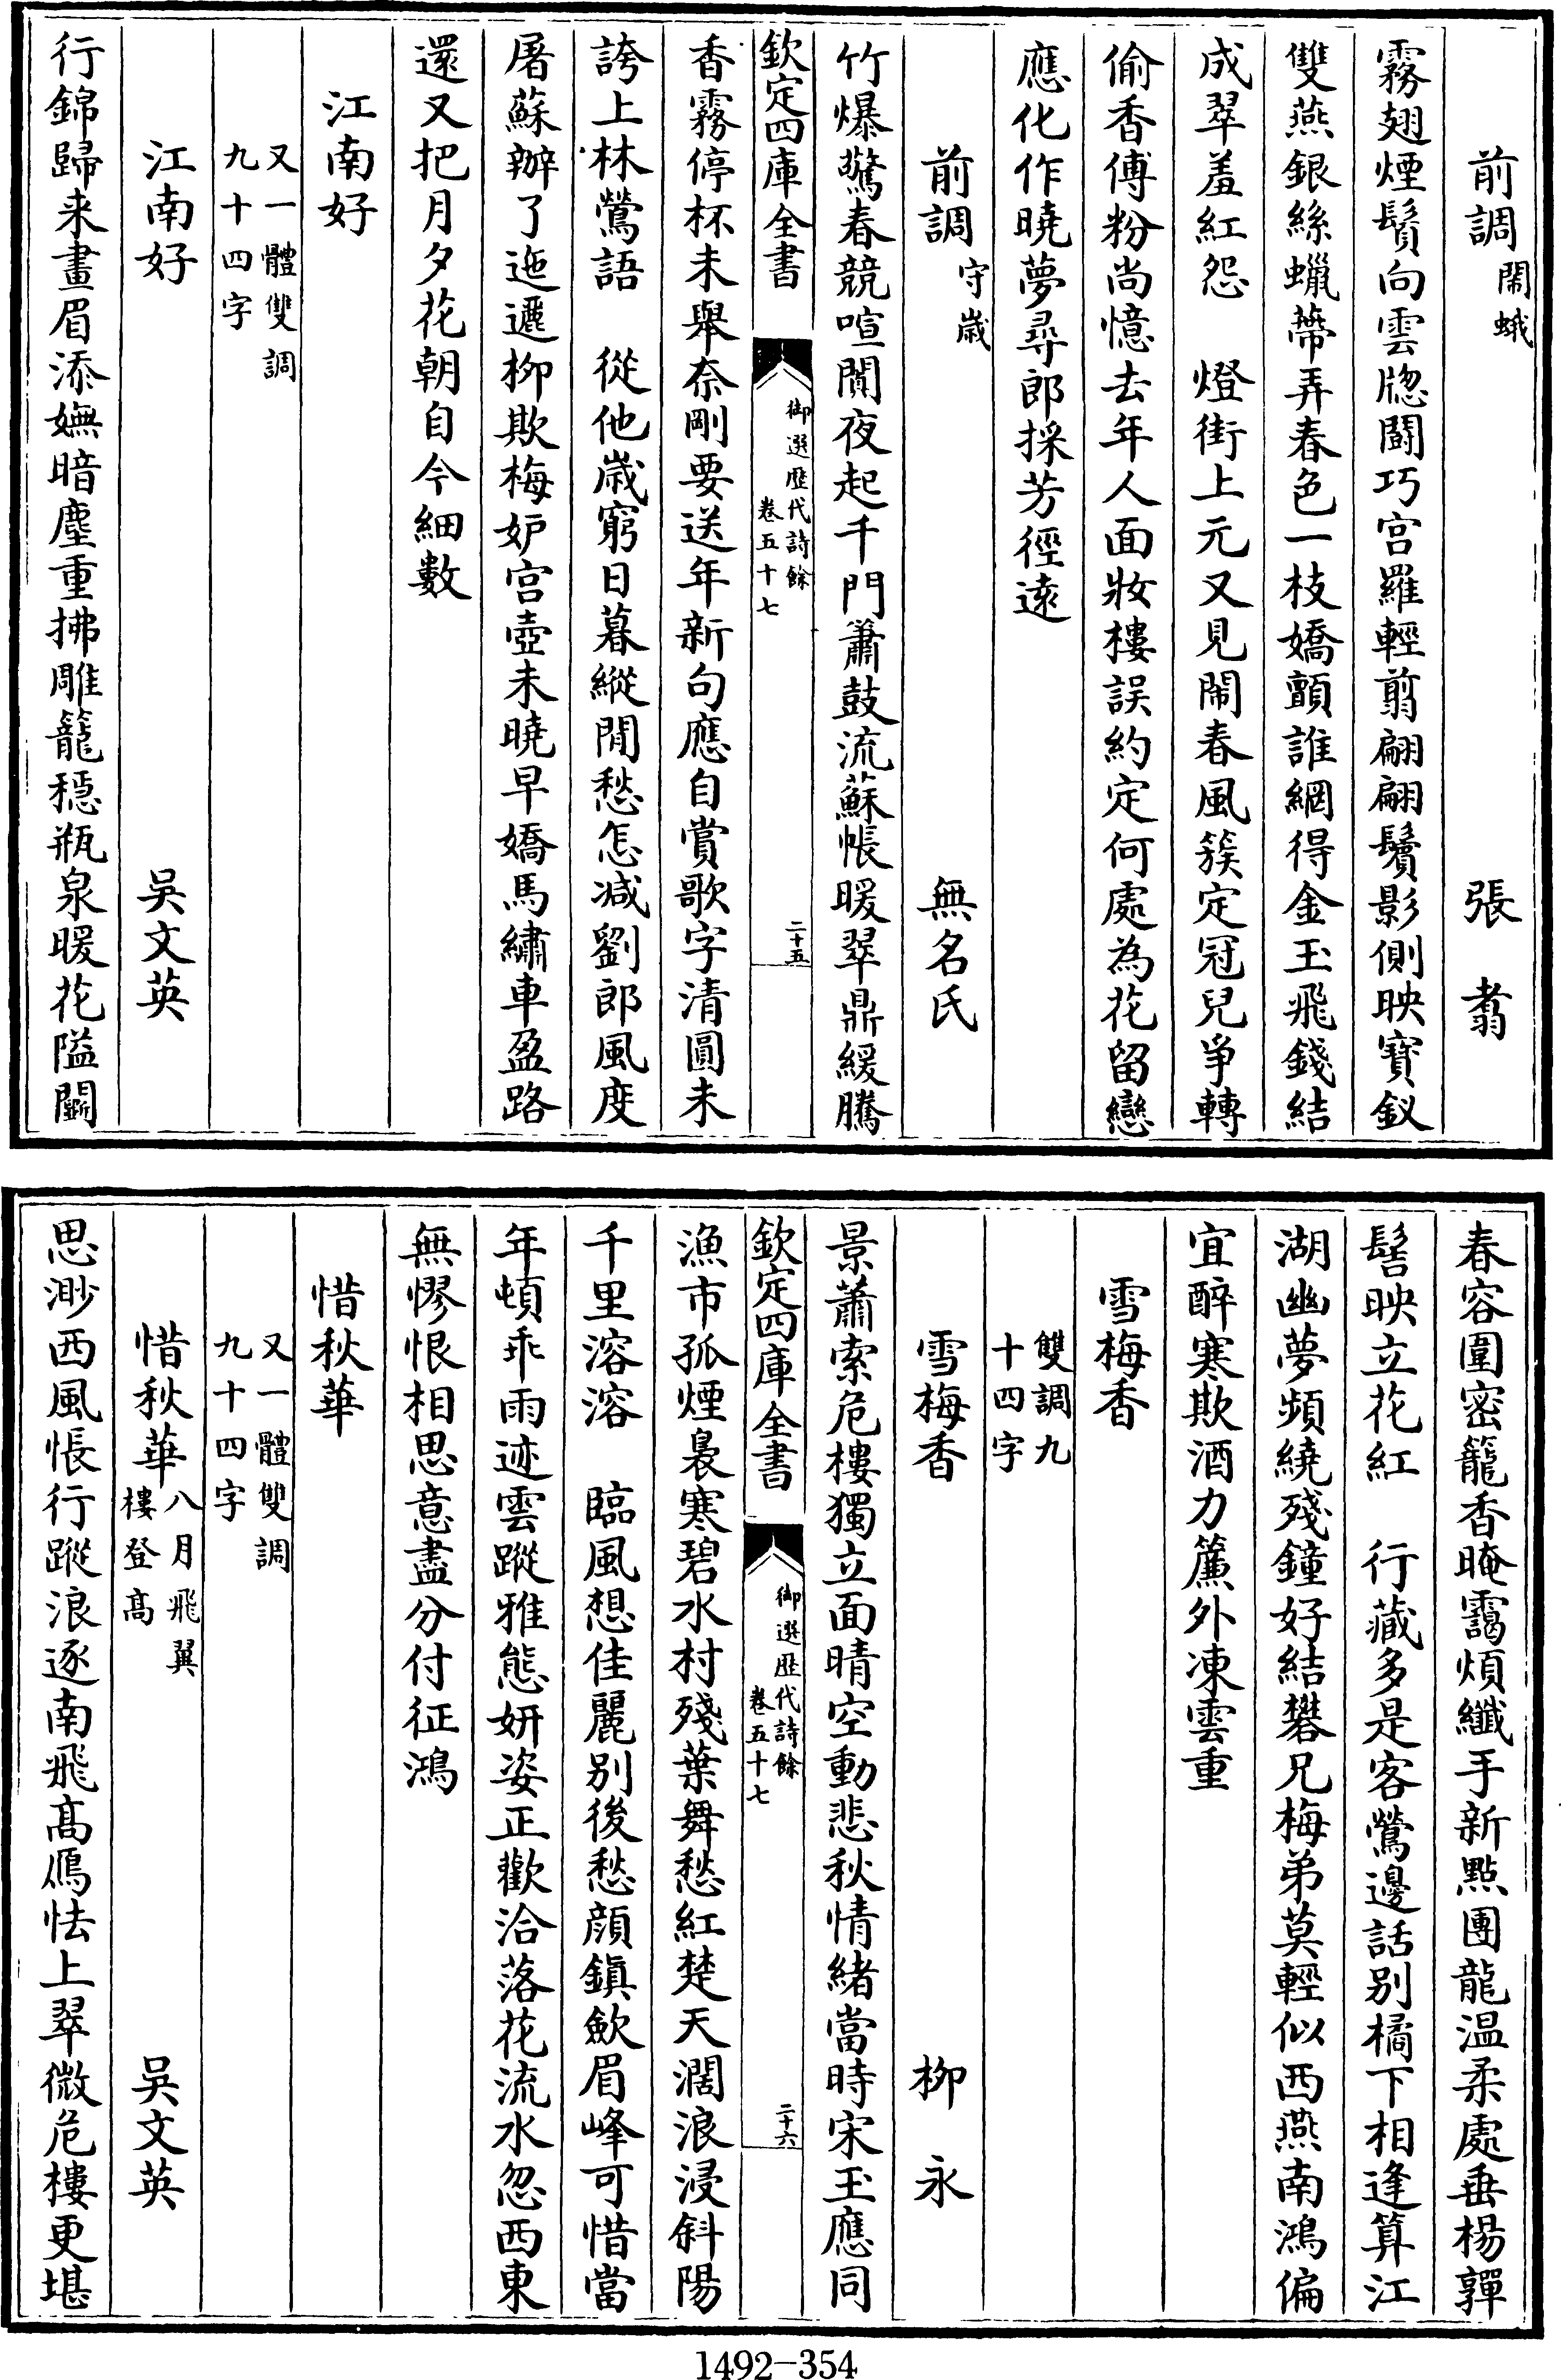 前調 閙蛾 張翥
霧翅煙鬚向雲牕鬬巧宫羅輕剪翩翩鬢影側映寳釵
雙燕銀絲蠟蔕弄春色一枝嬌顫誰網得金玉飛錢結
成翠羞紅怨 燈街上元又見閙春風簇定冠兒爭轉
偷香傅粉尚憶去年人面妝樓誤約定何處為花留戀
應化作曉夢尋郎採芳徑逺
前調 守嵗 無名氏
竹爆驚春競喧闐夜起千門簫鼓流蘇帳暖翠鼎緩騰
欽定四庫全書 御選歴代詩餘 卷五十七 二十五
香霧停杯未舉奈剛要送年新句應自賞歌字清圓未
誇上林鶯語 從他嵗窮日暮縱閒愁怎減劉郎風度
屠蘇辦了迤邐柳欺梅妒宫壺未曉早嬌馬繡車盈路
還又把月夕花朝自今細數
江南好
又一體雙調
九十四字
江南好 吳文英
行錦歸来畫眉添嫵暗塵重拂雕籠穏瓶泉暖花隘鬭
春容圍密籠香晻靄煩纎手新㸃團龍温柔處垂楊嚲
髻映立花紅 行藏多是客鶯邊話别橘下相逢算江
湖幽夢頻繞殘鐘好結礬兄梅弟莫輕似西燕南鴻偏
宜醉寒欺酒力簾外凍雲重
雪梅香
雙調九
十四字
雪梅香 柳永
景蕭索危樓獨立面晴空動悲秋情緒當時宋玉應同
欽定四庫全書 御選歴代詩餘 卷五十七 二十六
漁市孤煙裊寒碧水村殘葉舞愁紅楚天濶浪浸斜陽
千里溶溶 臨風想佳麗别後愁顔鎮歛眉峰可惜當
年頓乖雨迹雲蹤雅態妍姿正歡洽落花流水忽西東
無憀恨相思意盡分付征鴻
惜秋華
又一體雙調
九十四字
惜秋華 八月飛翼
樓登髙 吳文英
思渺西風悵行蹤浪逐南飛髙鴈怯上翠微危樓更堪
1492-354